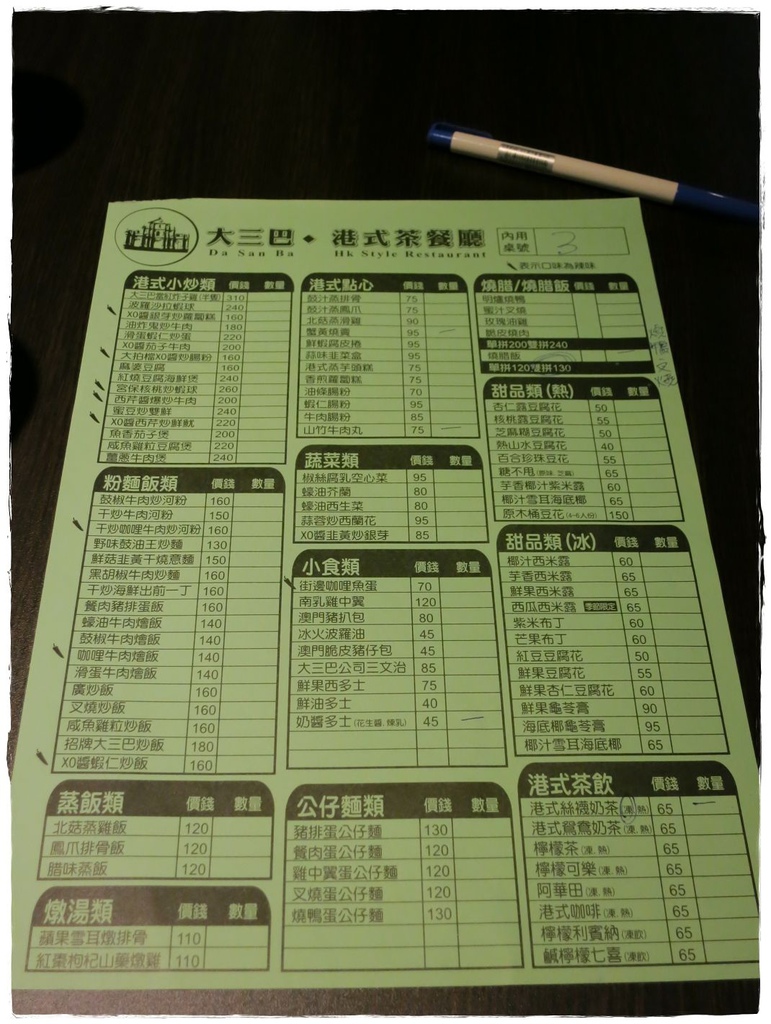 大三巴・港式茶餐廳
Da San Ba Hk Style Restaurant
內用桌號 3
表示口味為辣味
港式小炒類 價錢 數量
大三巴當紅炸子雞(半隻) 310
波羅沙拉蝦球 240
XO醬銀芽炒蘿蔔糕 160
油炸鬼炒牛肉 180
滑蛋蝦仁炒蛋 220
XO醬茄子牛肉 200
大拍檔XO醬炒腸粉 160
麻婆豆腐 160
紅燒豆腐海鮮煲 240
宮保核桃炒蝦球 260
西芹醬爆炒牛肉 200
蜜豆炒雙鮮 240
XO醬西芹炒鮮魷 220
魚香茄子煲 200
咸魚雞粒豆腐煲 220
蘿蔔牛肉煲 240
粉麵飯類 價錢 數量
鼓椒牛肉炒河粉 160
干炒牛肉河粉 150
干炒咖哩牛肉炒河粉 160
野味鼓油王炒麵 130
鮮菇韭黃干燒意麵 150
黑胡椒牛肉炒麵 160
干炒海鮮出前一丁 160
餐肉豬排蛋飯 160
蠔油牛肉燴飯 140
鼓椒牛肉燴飯 140
咖哩牛肉燴飯 140
滑蛋牛肉燴飯 140
廣炒飯 160
叉燒炒飯 160
咸魚雞粒炒飯 160
招牌大三巴炒飯 180
XO醬蝦仁炒飯 160
蒸飯類 價錢 數量
北菇蒸雞飯 120
鳳爪排骨飯 120
腊味蒸飯 120
燉湯類 價錢 數量
蘋果雪耳燉排骨 110
紅棗枸杞山藥燉雞 110
港式點心 價錢 數量
鼓汁蒸排骨 75
鼓汁蒸鳳爪 75
北菇蒸滑雞 90
蟹黃燒賣 95
鮮蝦腐皮捲 95
蒜味韭菜盒 95
港式蒸芋頭糕 75
香煎蘿蔔糕 75
油條腸粉 70
蝦仁腸粉 85
牛肉腸粉 85
山竹牛肉丸 75
蔬菜類 價錢 數量
椒絲腐乳空心菜 95
蠔油芥蘭 80
蠔油西生菜 80
蒜蓉炒西蘭花 95
XO醬韭黃炒銀芽 85
小食類 價錢 數量
街邊咖哩魚蛋 70
南乳雞中翼 120
澳門豬扒包 80
冰火波蘿油 45
澳門脆皮豬仔包 45
大三巴公司三文治 85
鮮果西多士 75
鮮油多士 40
奶醬多士(花生醬.煉乳) 45
公仔麵類 價錢 數量
豬排蛋公仔麵 130
餐肉蛋公仔麵 120
雞中翼蛋公仔麵 120
叉燒蛋公仔麵 120
燒鴨蛋公仔麵 130
燒腊/燒腊飯 價錢 數量
明爐燒鴨
蜜汁叉燒
玫瑰油雞
脆皮燒肉
單拼200雙拼240
燒腊飯
單拼120雙拼130
甜品類(熱) 價錢 數量
杏仁露豆腐花 50
核桃露豆腐花 55
芝麻糊豆腐花 50
熱山水豆腐花 40
百合珍珠豆花 55
糖不甩(原味.芝麻) 65
芋香椰汁紫米露 60
椰汁雪耳海底椰 65
原木桶豆花(4-6人份) 150
甜品類(冰) 價錢 數量
椰汁西米露 60
芋香西米露 65
鮮果西米露 65
西瓜西米露 季節限定 65
紫米布丁 60
芒果布丁 60
紅豆豆腐花 50
鮮果豆腐花 55
鮮果杏仁豆腐花 60
鮮果龜苓膏 90
海底椰龜苓膏 95
椰汁雪耳海底椰 65
港式茶飲 價錢 數量
港式絲襪奶茶(凍.熱) 65
港式鴛鴦奶茶(凍.熱) 65
檸檬茶(凍.熱) 65
檸檬可樂(凍.熱) 65
阿華田(凍.熱) 65
港式咖啡(凍.熱) 65
檸檬利賓納(凍飲) 65
鹹檸檬七喜(凍飲) 65